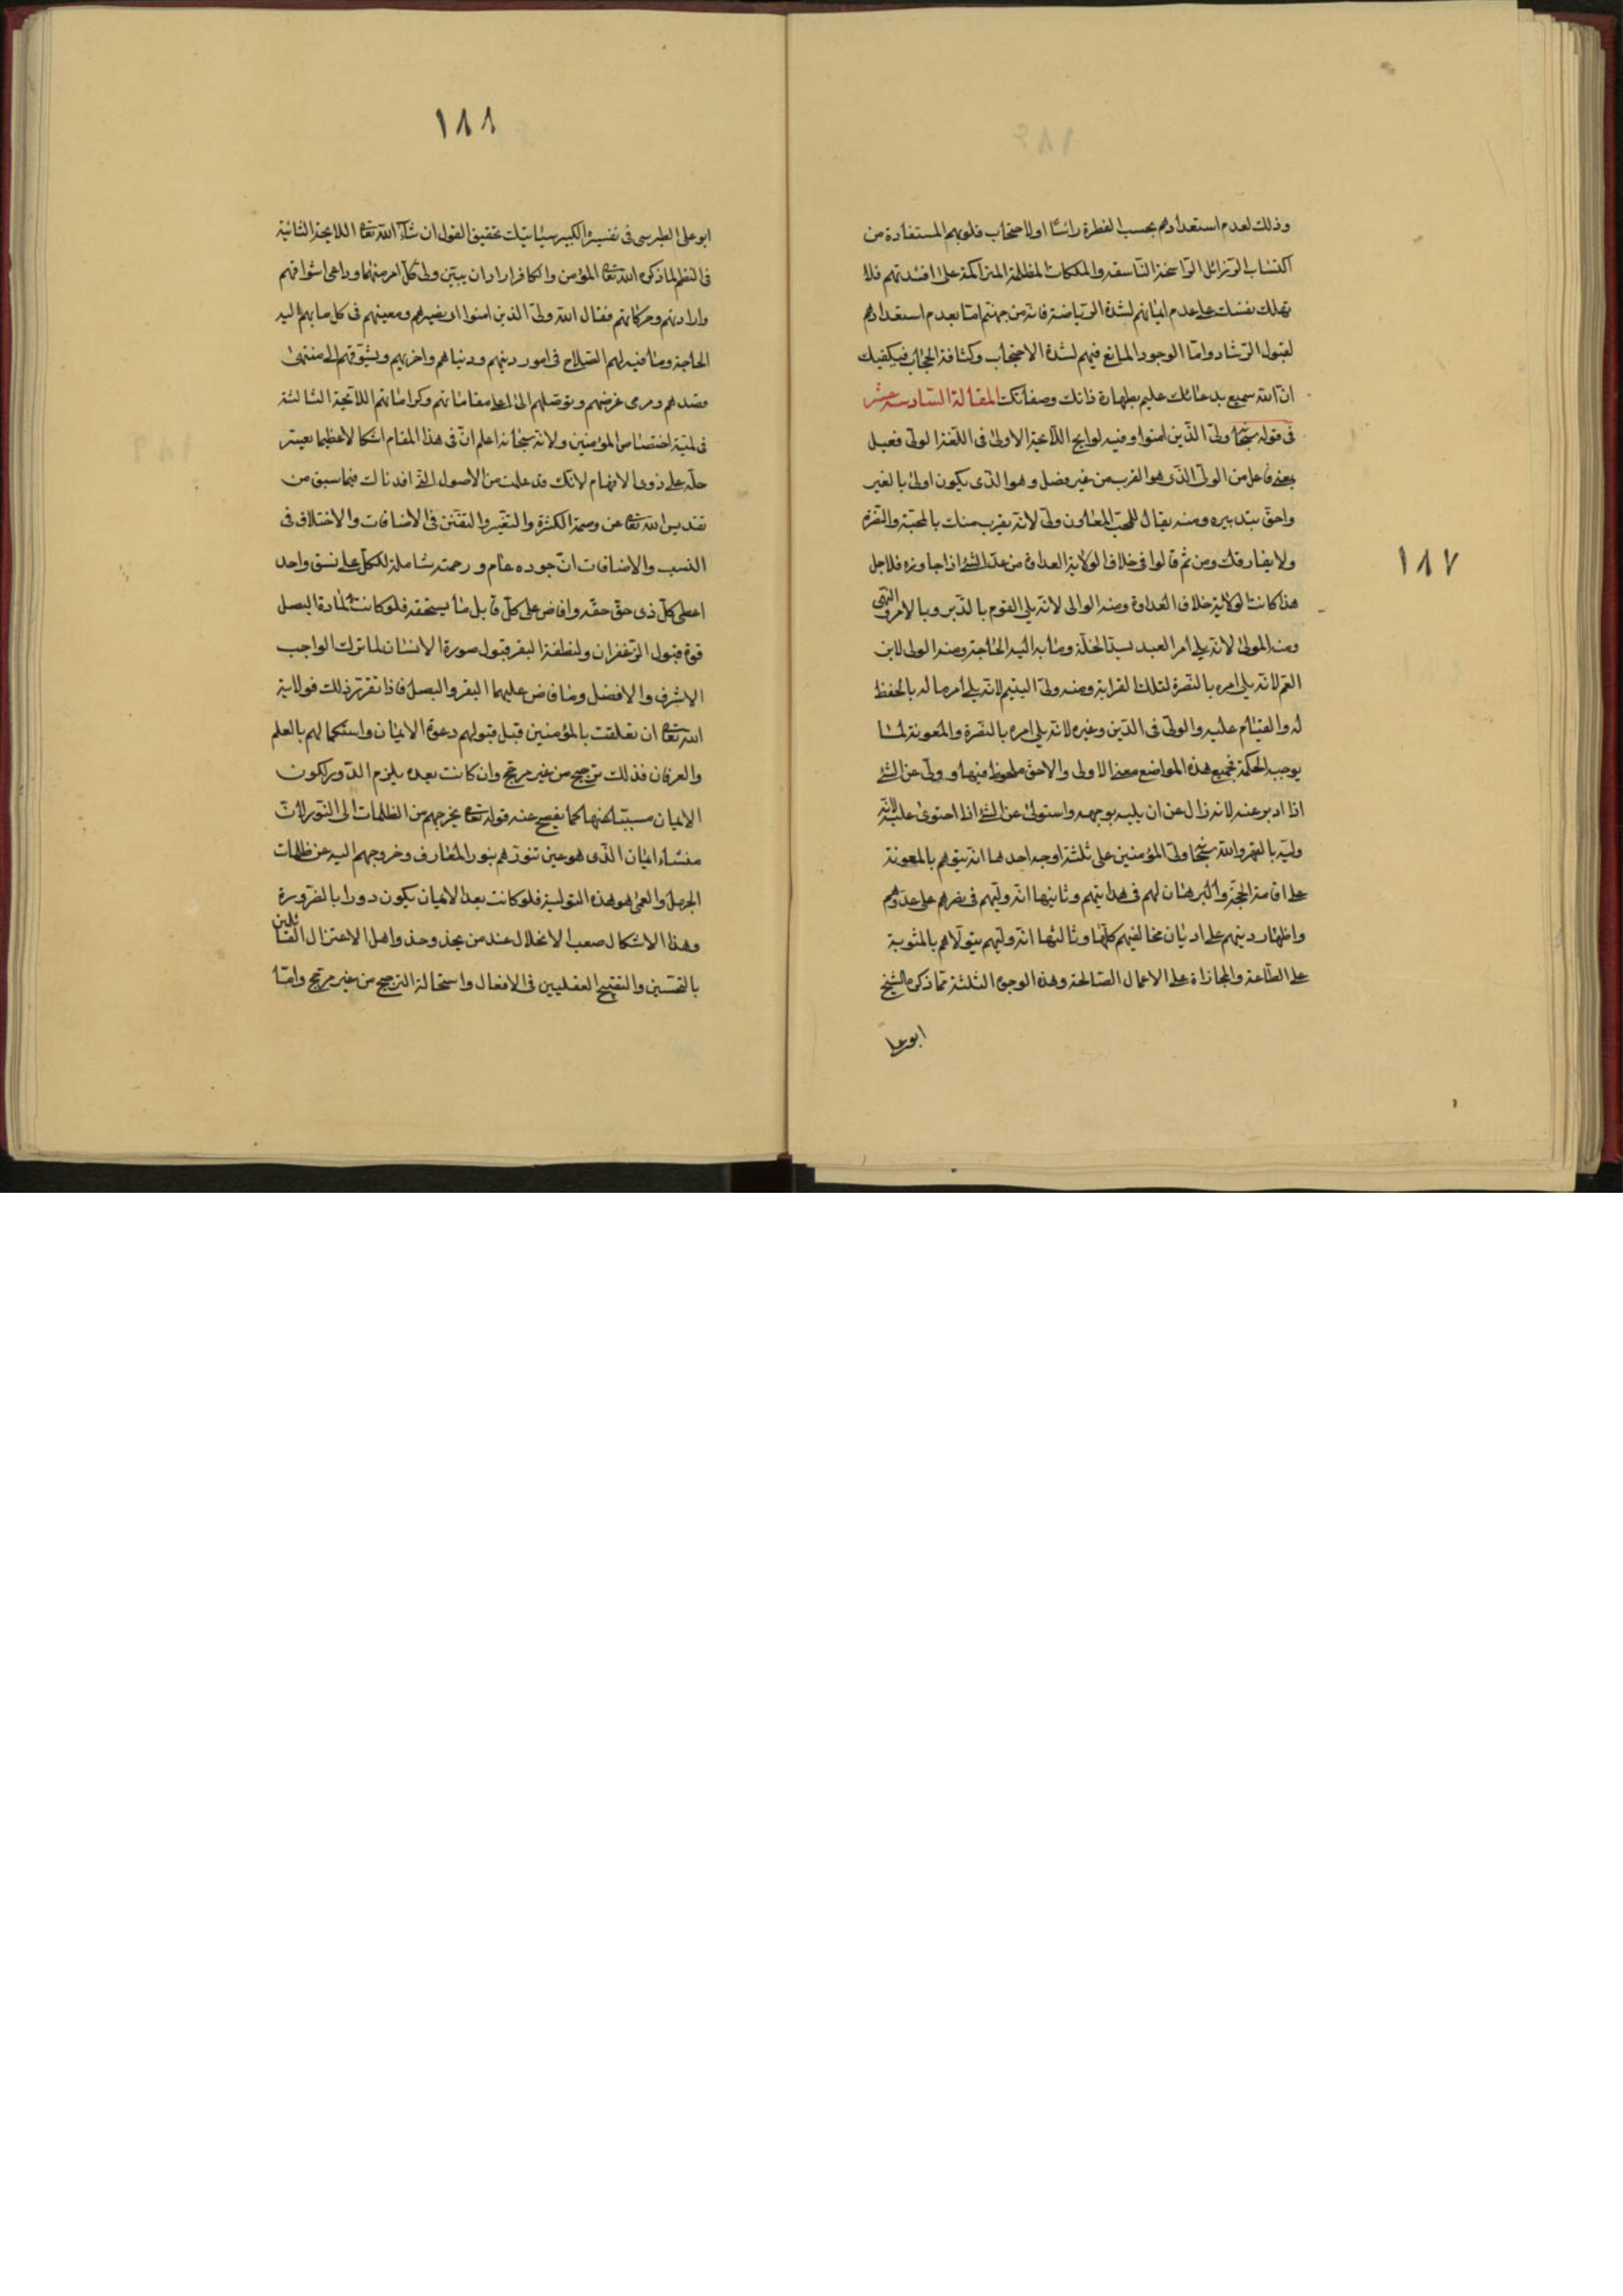 ١٨٧
وذلك لعدم استعدادهم بحسب الفطرة رائسًا او لاحتجاب قلوبهم المستفادة من
اكتساب الرذائل الراسخة الناسقة والملكات المظلمة المتراكمة على افئدتهم فلا
تهلك نفسك على عدم ايمانهم لشدة الرياضة فانه من جهتهم اما بعدم استعدادهم
لقبول الرشاد واما الوجود المانع فيهم لشدة الاحتجاب وكثافة الحجاب فيكفيك
ان الله سميع بدعائك عليم بطهارة ذاتك وصفاتك المقالة السادسة عشر
فى قوله سبحانه ولى الذين امنوا وفيه لوايح اللايحة الاولى فى اللغة الولى فعيل
بمعنى فاعل من الولى الذى هو القرب من غير فصل وهو الذى يكون اولى بالغير
واحق بتدبيره ومنه يقال للمحب المعاون ولى لانه يقرب منك بالمحبة والنصرة
ولا يفارقك ومن ثم قالوا فى خلاف الولاية العداوة من عدا الشئ اذا جاوزه فلاجل
هذا كانت الولاية خلاف العداوة ومنه الوالى لانه يلى القوم بالتدبير وبالامر والنهى
ومنه المولى لانه يلى امر العبد بسد الخلة وما به اليه الحاجة ومنه الولى لابن
العم لانه يلى امره بالنصرة لتلك القرابة ومنه ولى اليتيم لانه يلى امر ماله بالحفظ
له والقيام عليه والولى فى الدين وغيره لانه يلى امره بالنصرة والمعونة لما
يوجب الحكمة فجميع هذه المواضع معنى الاولى والاحق ملحوظ فيها وولى عن الشئ
اذا ادبر عنه لانه زال عن ان يليه بوجهه واستولى عن الشئ اذا احتوى عليه لانه
وليه بالقهر والله سبحانه ولى المؤمنين على ثلثة اوجه احدها انه يتولهم بالمعونة
على اقامة الحجة والبرهان لهم فى هدايتهم وثانيها انه وليهم فى نصرهم على عدوهم
واظهار دينهم على اديان مخالفيهم كلها وثالثها انه وليهم يتولاهم بالمثوبة
على الطاعة والمجازاة على الاعمال الصالحة وهذه الوجوه الثلثة مما ذكره الشيخ
ابو على
١٨٨
ابو على الطبرسى فى تفسيره الكبير سيأتيك تحقيق القول ان شاء الله تعا اللايحة الثانية
فى النظم لما ذكر الله تعا المؤمن والكافر اراد ان يبين ولى كل امر منهما وداعى اشواقهم
وارادتهم وحركاتهم فقال الله ولى الذين امنوا اى نصيرهم ومعينهم فى كل ما بهم اليه
الحاجة وما فيه لهم الصلاح فى امور دينهم ودنياهم واخريهم ويشوقهم الى منتهى
قصدهم ومرمى غرضهم ويوصلهم الى اعلى مقاماتهم وكراماتهم اللايحة الثالثة
فى لمية اختصاص المؤمنين ولانه سبحانه اعلم ان فى هذا المقام اشكالا عظيما يعسر
حله على ذوى الافهام لانك قد علمت من الاصول التى افدناك فيما سبق من
تقديس الله تعا عن وصمة الكثرة والتغير والتفنن فى الاضافات والاختلاف فى
النسب والاضافات ان جوده عام ورحمته شاملة للكل على نسق واحد
اعطى كل ذى حق حقه وافاض على كل قابل ما يستحقه فلو كانت لمادة البصل
قوة قبول الزعفران ولنطفة البقر قبول صورة الانسان لما ترك الواجب
الاشرف والافضل وما فاض عليهما البقر والبصل فاذا تقرر ذلك فولاية
الله تعا ان تعلقت بالمؤمنين قبل قبولهم دعوة الايمان واستكمالهم بالعلم
والعرفان فذلك ترجيح من غير مرجح وان كانت بعده يلزم الدور لكون
الايمان مسببًا عنها كما يفصح عنه قوله تعا يخرجهم من الظلمات الى النور لان
منشاء ايمان الذى هو عين تنورهم بنور المعارف وخروجهم اليه عن ظلمات
الجهل والعمى هو هذه التولية فلو كانت بعد الايمان يكون دورا بالضرورة
وهذا الاشكال صعب الانحلال عند من يحذو حذو اهل الاعتزال القائلين
بالتحسين والتقبيح العقليين فى الافعال واستحالة الترجيح من غير مرجح واما